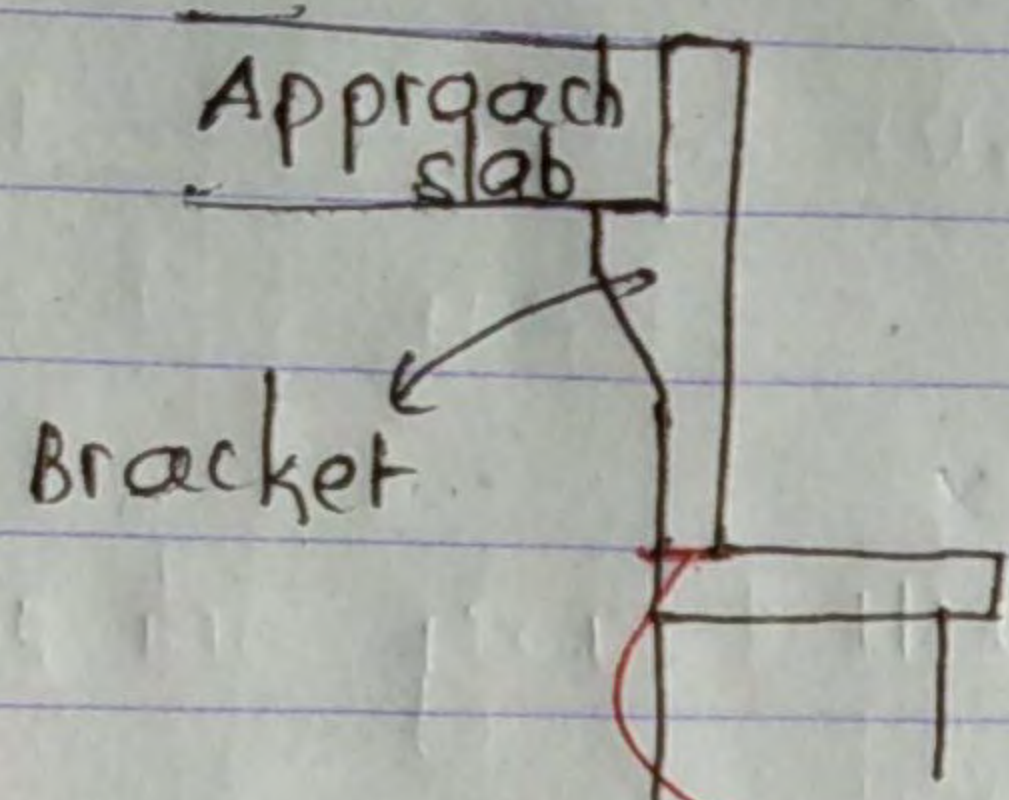 Approach
slab
Bracket